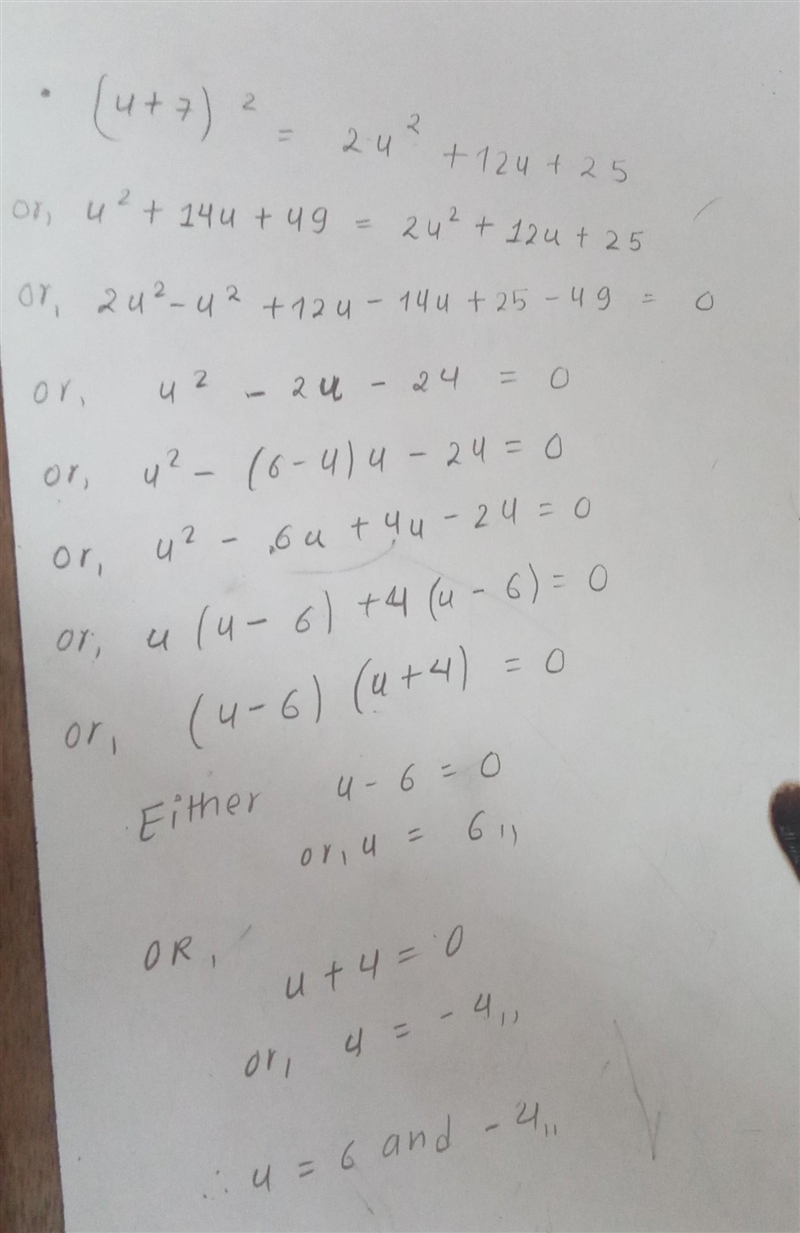 (u+7)² = 2u² + 12u + 25
or, u² + 14u + 49 = 2u² + 12u + 25
or, 2u² - u² + 12u - 14u + 25 - 49 = 0
or, u² - 2u - 24 = 0
or, u² - (6-4)u - 24 = 0
or, u² - 6u + 4u - 24 = 0
or, u(u - 6) + 4(u - 6) = 0
or, (u-6) (u+4) = 0
Either u - 6 = 0
or, u = 6,,
OR, u + 4 = 0
or, u = -4,,
∴ u = 6 and -4,,